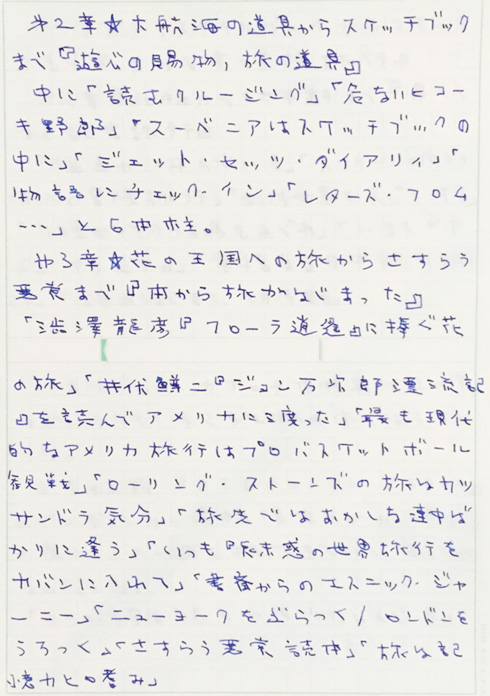 第2章☆大航海の道具からスケッチブック
まで『遊心の賜物，旅の道具』
中に「読むクルージング」「危ないヒコー
キ野郎」「スーベニアはスケッチブックの
中に」「ジェット・セッツ・ダイアリィ」「
物語にチェック・イン」「レターズ・フロム
…」と6本柱。
第3章☆花の王国への旅からさすらう
悪党まで『本から旅がはじまった』
「澁澤龍彦『フローラ逍遥』に捧ぐ花
の旅」「井伏鱒二『ジョン万次郎漂流記
』を読んでアメリカに渡った」「最も現代
的なアメリカ旅行はプロバスケットボール
観戦」「ローリング・ストーンズの旅はカッ
サンドラ気分」「旅先ではおかしな連中ば
かりに逢う」「いつも『版末惑の世界旅行を
カバンに入れて」「書斎からのエスニック・ジャ
ーニー」「ニューヨークをぶらつく/ロンドンを
うろつく」「さすらう悪党読本」「旅は記
憶力と口誉み」